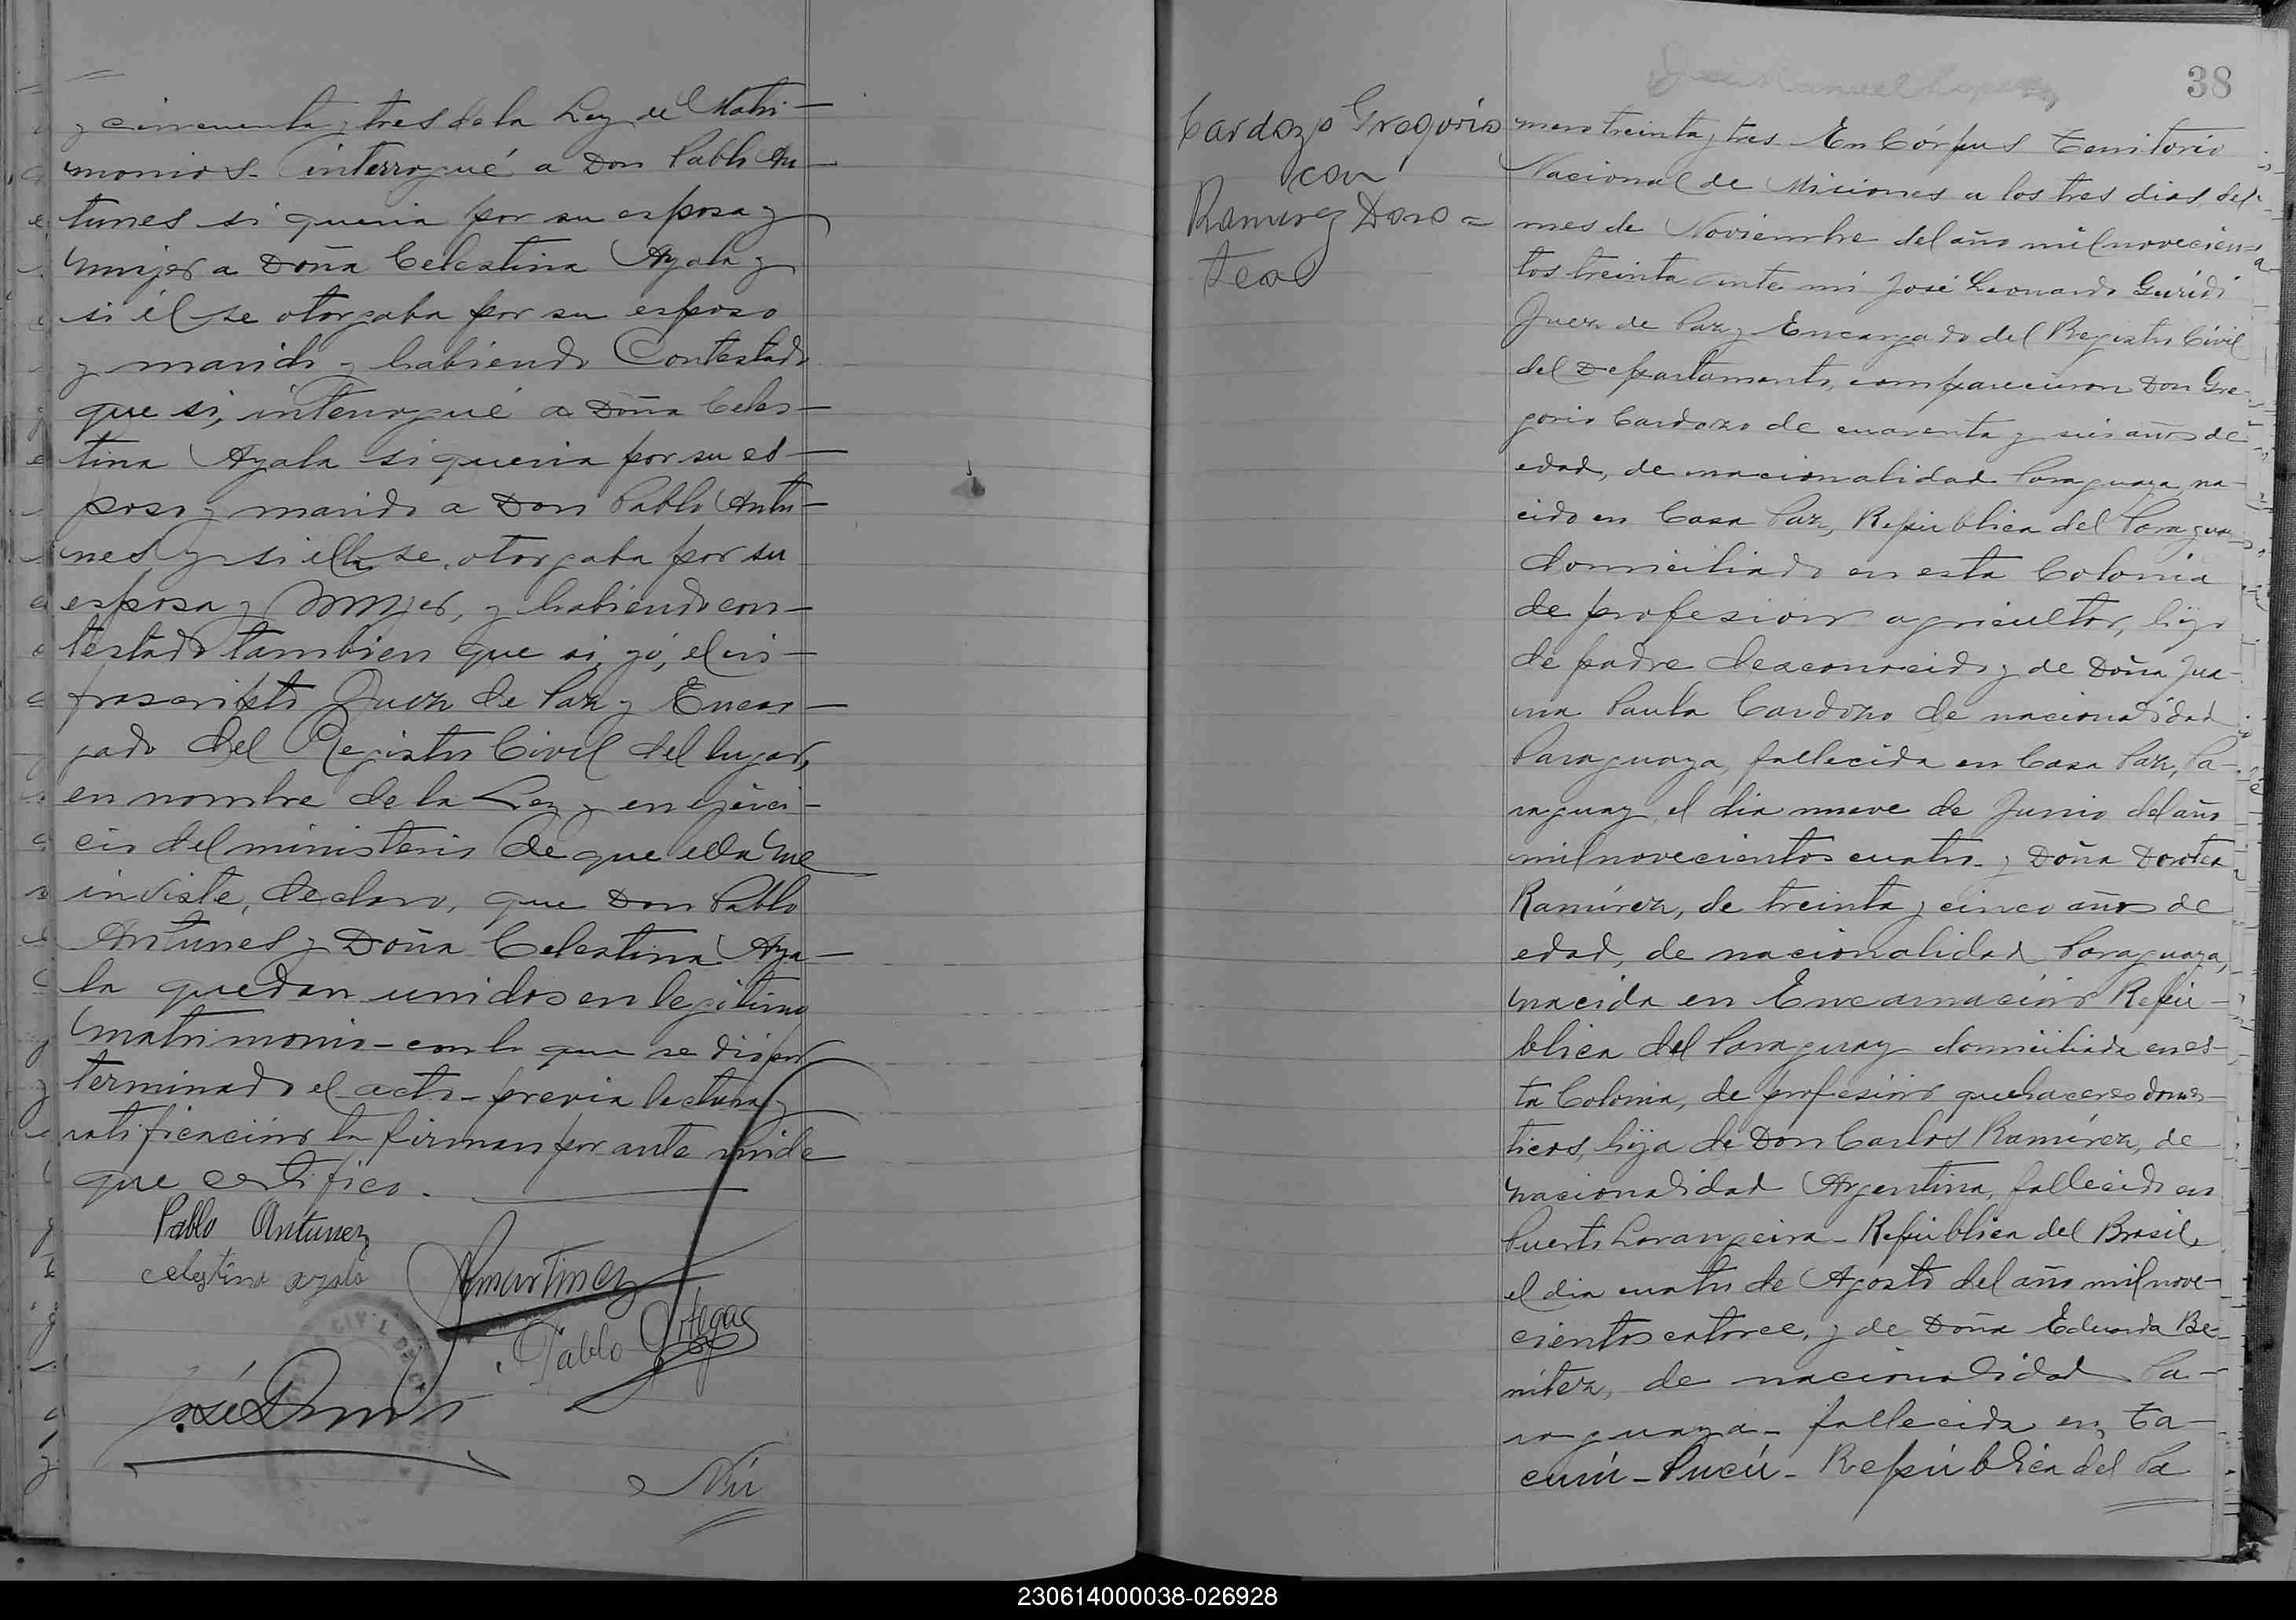 y cincuenta y tres de la Ley de Matri-
monios. interrogué a Don Pablo An-
tunes si queria por su esposa y
mujer a Doña Celestina Ayala y
si él se otorgaba por su esposo
y marido y habiendo Contestado
que si, interrogué a Doña Celes-
tina Ayala si queria por su es-
poso y marido a Don Pablo Antu-
nes y si ella se otorgaba por su
esposa y mujer, y habiendo con-
testado tambien que si, yó, el in-
frascripto Juez de Paz y Encar-
gado del Registro Civil del lugar,
en nombre de la Ley y en ejerci-
cio del ministerio de que ella me
inviste, declaro, que Don Pablo
Antunes y Doña Celestina Aya-
la quedan unidos en legitimo
matrimonio - con lo que se dió por
terminado el acto - prévia lectura y
ratificación la firman por ante mi de
que certifico.
Pablo Antunez
celestina ayala
Martinez
Pablo Ortegas
José
Nú
38
Cardozo Gregorio
con
Ramirez Doro=
tea
mero treinta y tres. En Córpus Territorio
Nacional de Misiones a los tres dias del
mes de Noviembre del año mil novecien-
tos treinta ante mi José Leonardo Guridi
Juez de Paz y Encargado del Registro Civil
del Departamento, comparecieron Don Gre-
gorio Cardozo de cuarenta y seis años de
edad, de nacionalidad Paraguaya, na-
cido en Casa Paz, República del Paraguay
domiciliado en esta Colonia
de profesión agricultor, hijo
de padre desconocido y de Doña Jua-
na Paula Cardozo de nacionalidad
Paraguaya, fallecida en Casa Paz, Pa-
raguay el dia nueve de Junio del año
mil novecientos cuatro - y Doña Dorotea
Ramírez, de treinta y cinco años de
edad, de nacionalidad Paraguaya,
nacida en Encarnación Repú-
blica del Paraguay domiciliada en es-
ta Colonia, de profesión quehaceres domes-
ticos, hija de Don Carlos Ramírez, de
nacionalidad Argentina, fallecido en
Puerto Larangeira - República del Brasil,
el dia cuatro de Agosto del año mil nove-
cientos catorce, y de Doña Eduarda Be-
nitez, de nacionalidad Pa-
raguaya - fallecida en Ta-
curú - Pucú - República del Pa
230614000038-026928